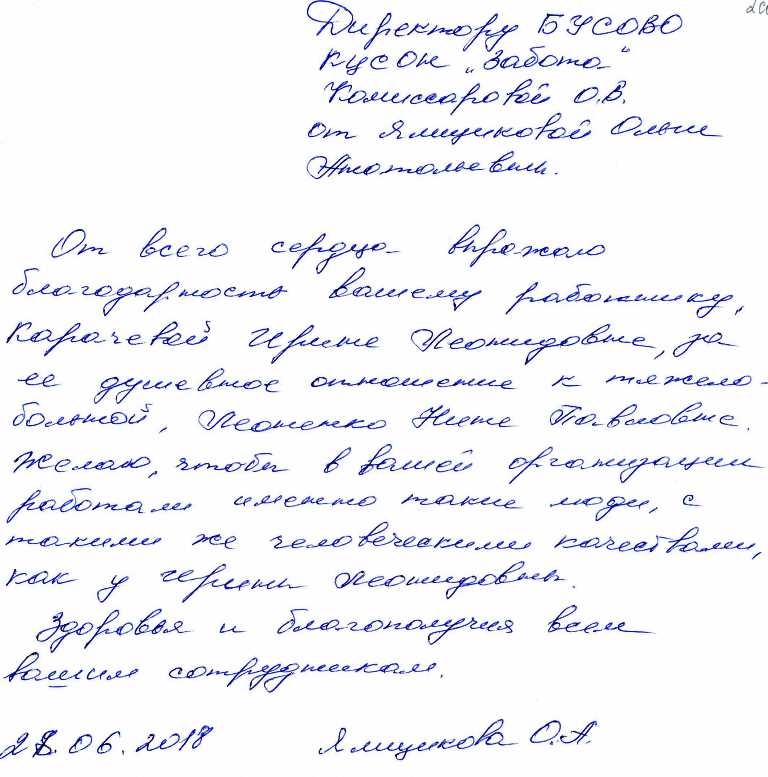 Директору БУСОВО
КЦСОН „Забота"
Комиссаровой О.В.
от Ямщиковой Ольги
Анатольевны.
От всего сердца выражаю
благодарность вашему работнику,
Карачевой Ирине Леонидовне, за
ее душевное отношение к тяжело-
больной, Леоненко Нине Павловне.
Желаю, чтобы в вашей организации
работали именно такие люди, с
такими же человеческими качествами,
как у Ирины Леонидовны.
Здоровья и благополучия всем
вашим сотрудникам.
06.2018 Ямщикова О.А.